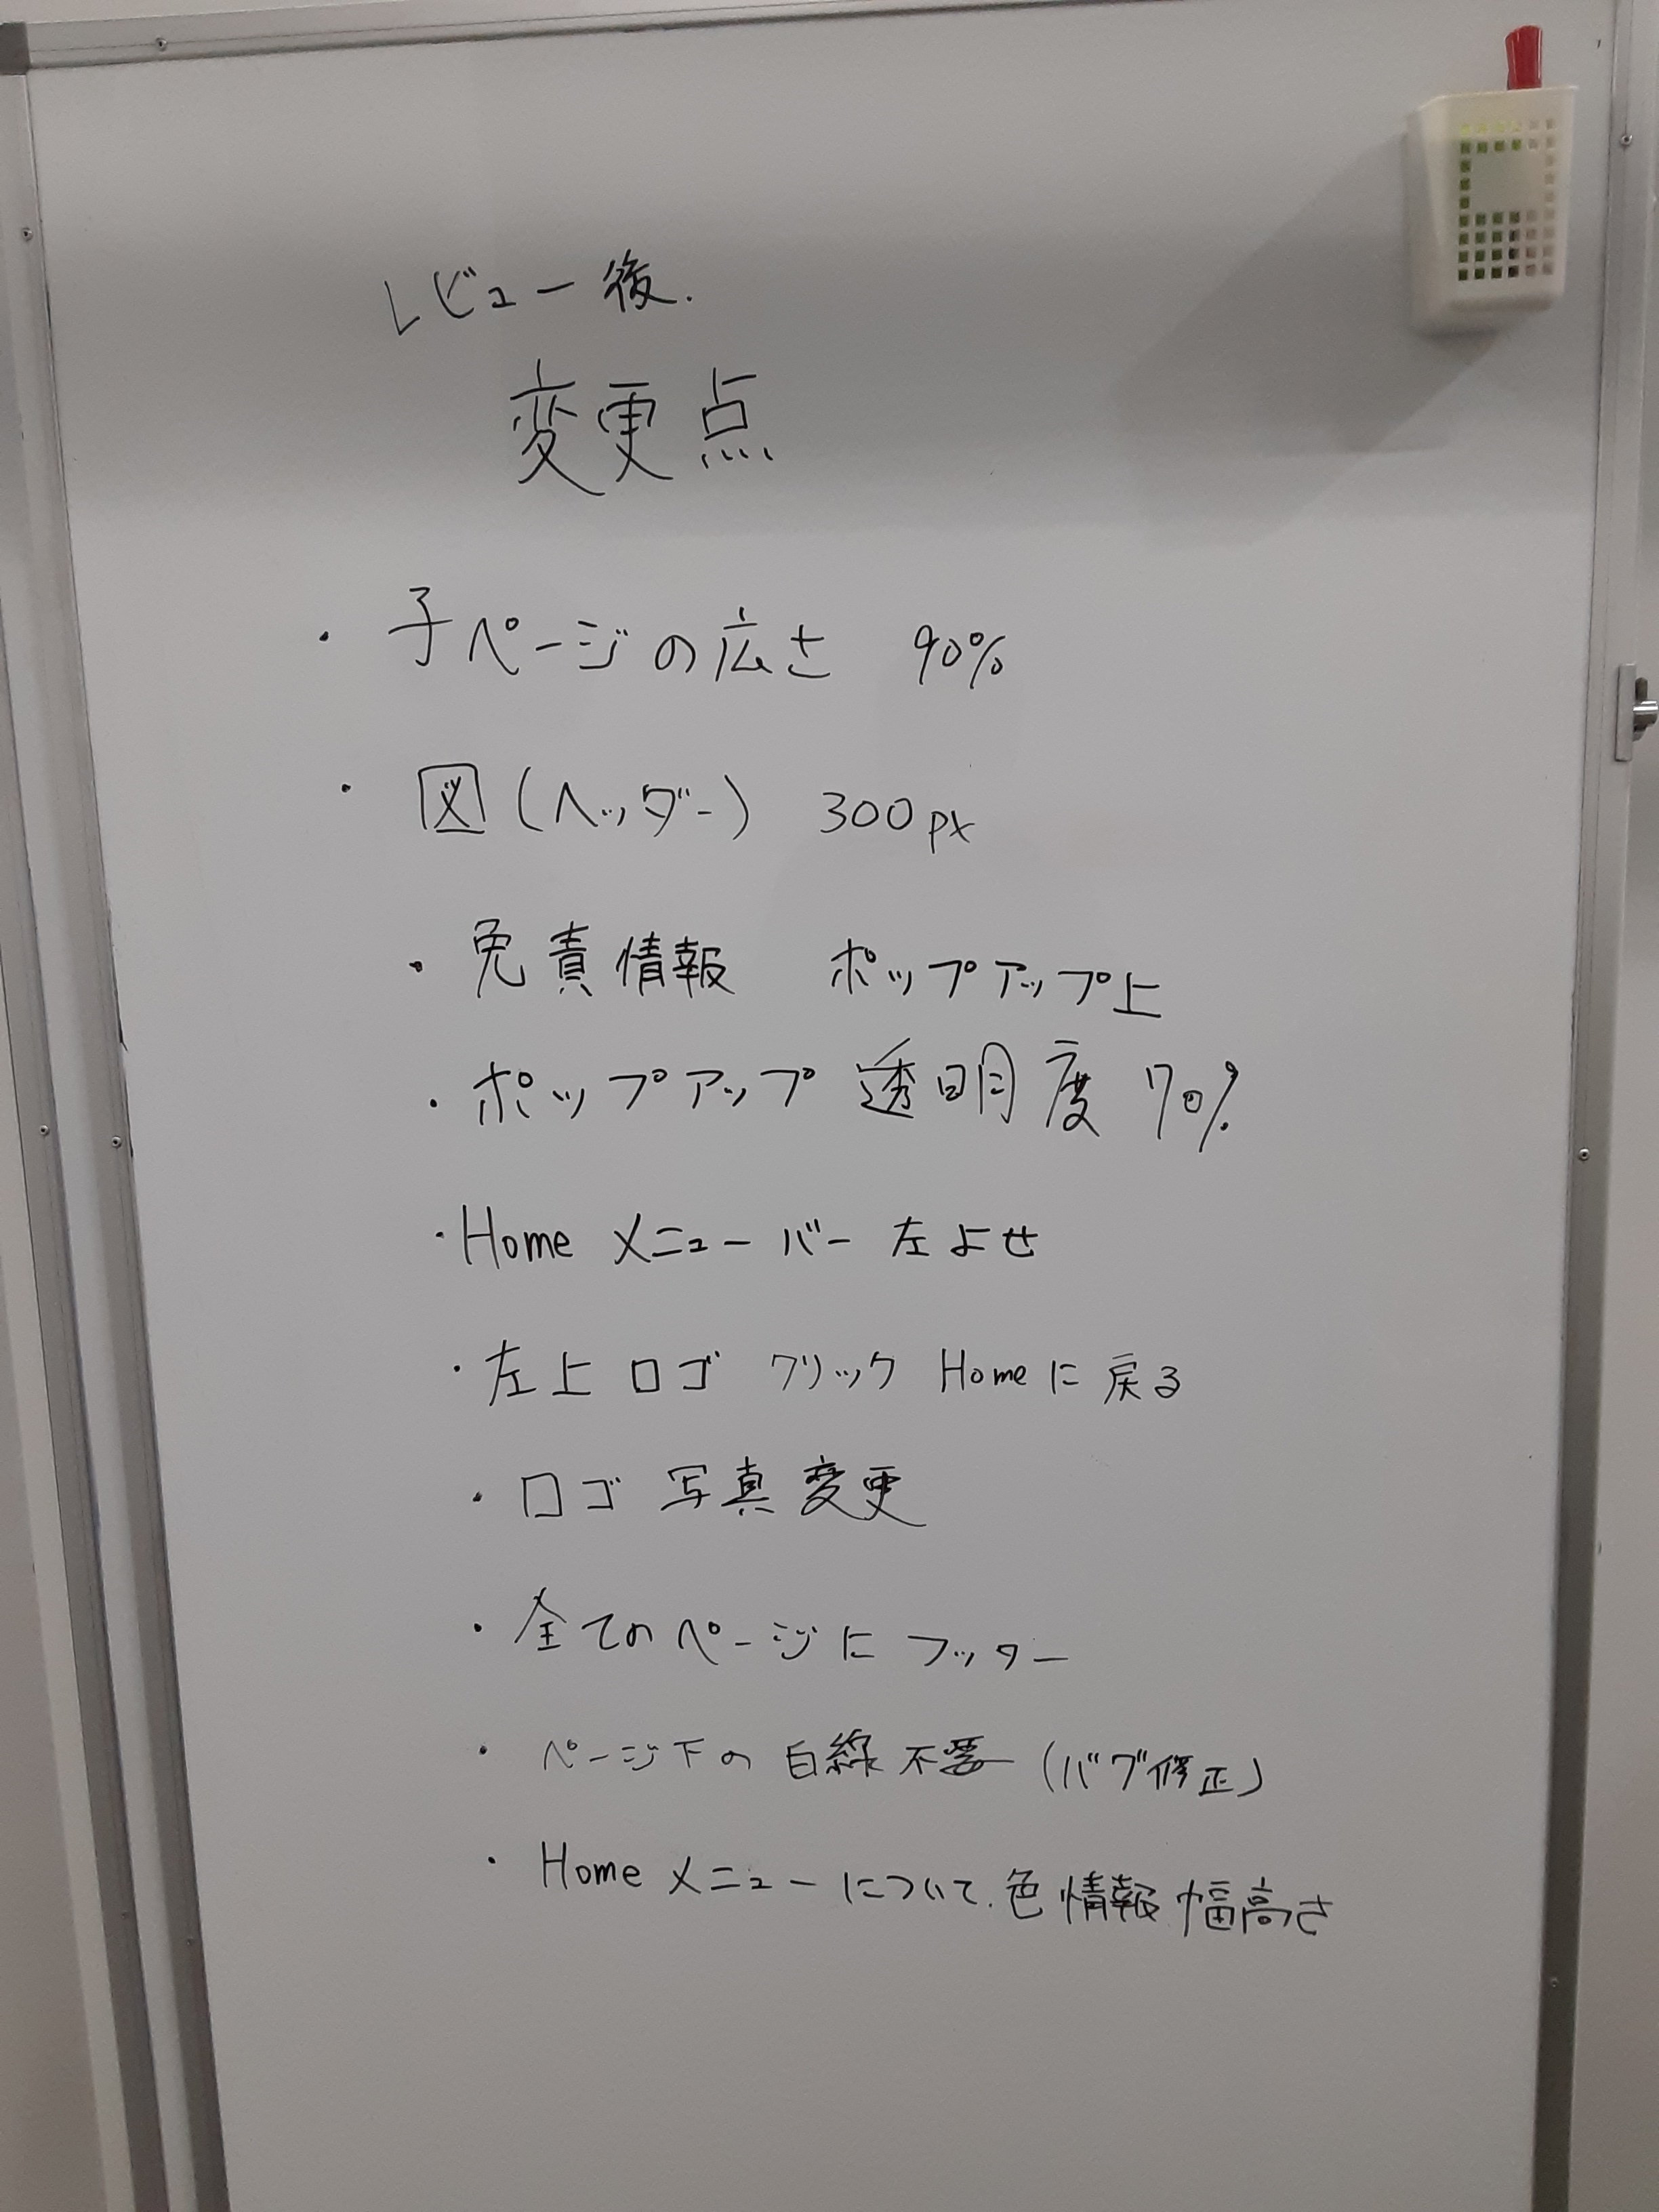 レビュー後.
変更点
・子ページの広さ 90%
・図(ヘッダー) 300px
・免責情報 ポップアップ上
・ポップアップ透明度 70%
・Home メニューバー 左よせ
・左上ロゴ クリック Homeに戻る
・ロゴ 写真変更
・全てのページにフッター
・ページ下の白線不要(バグ修正)
・Home メニューについて.色情報 幅高さ